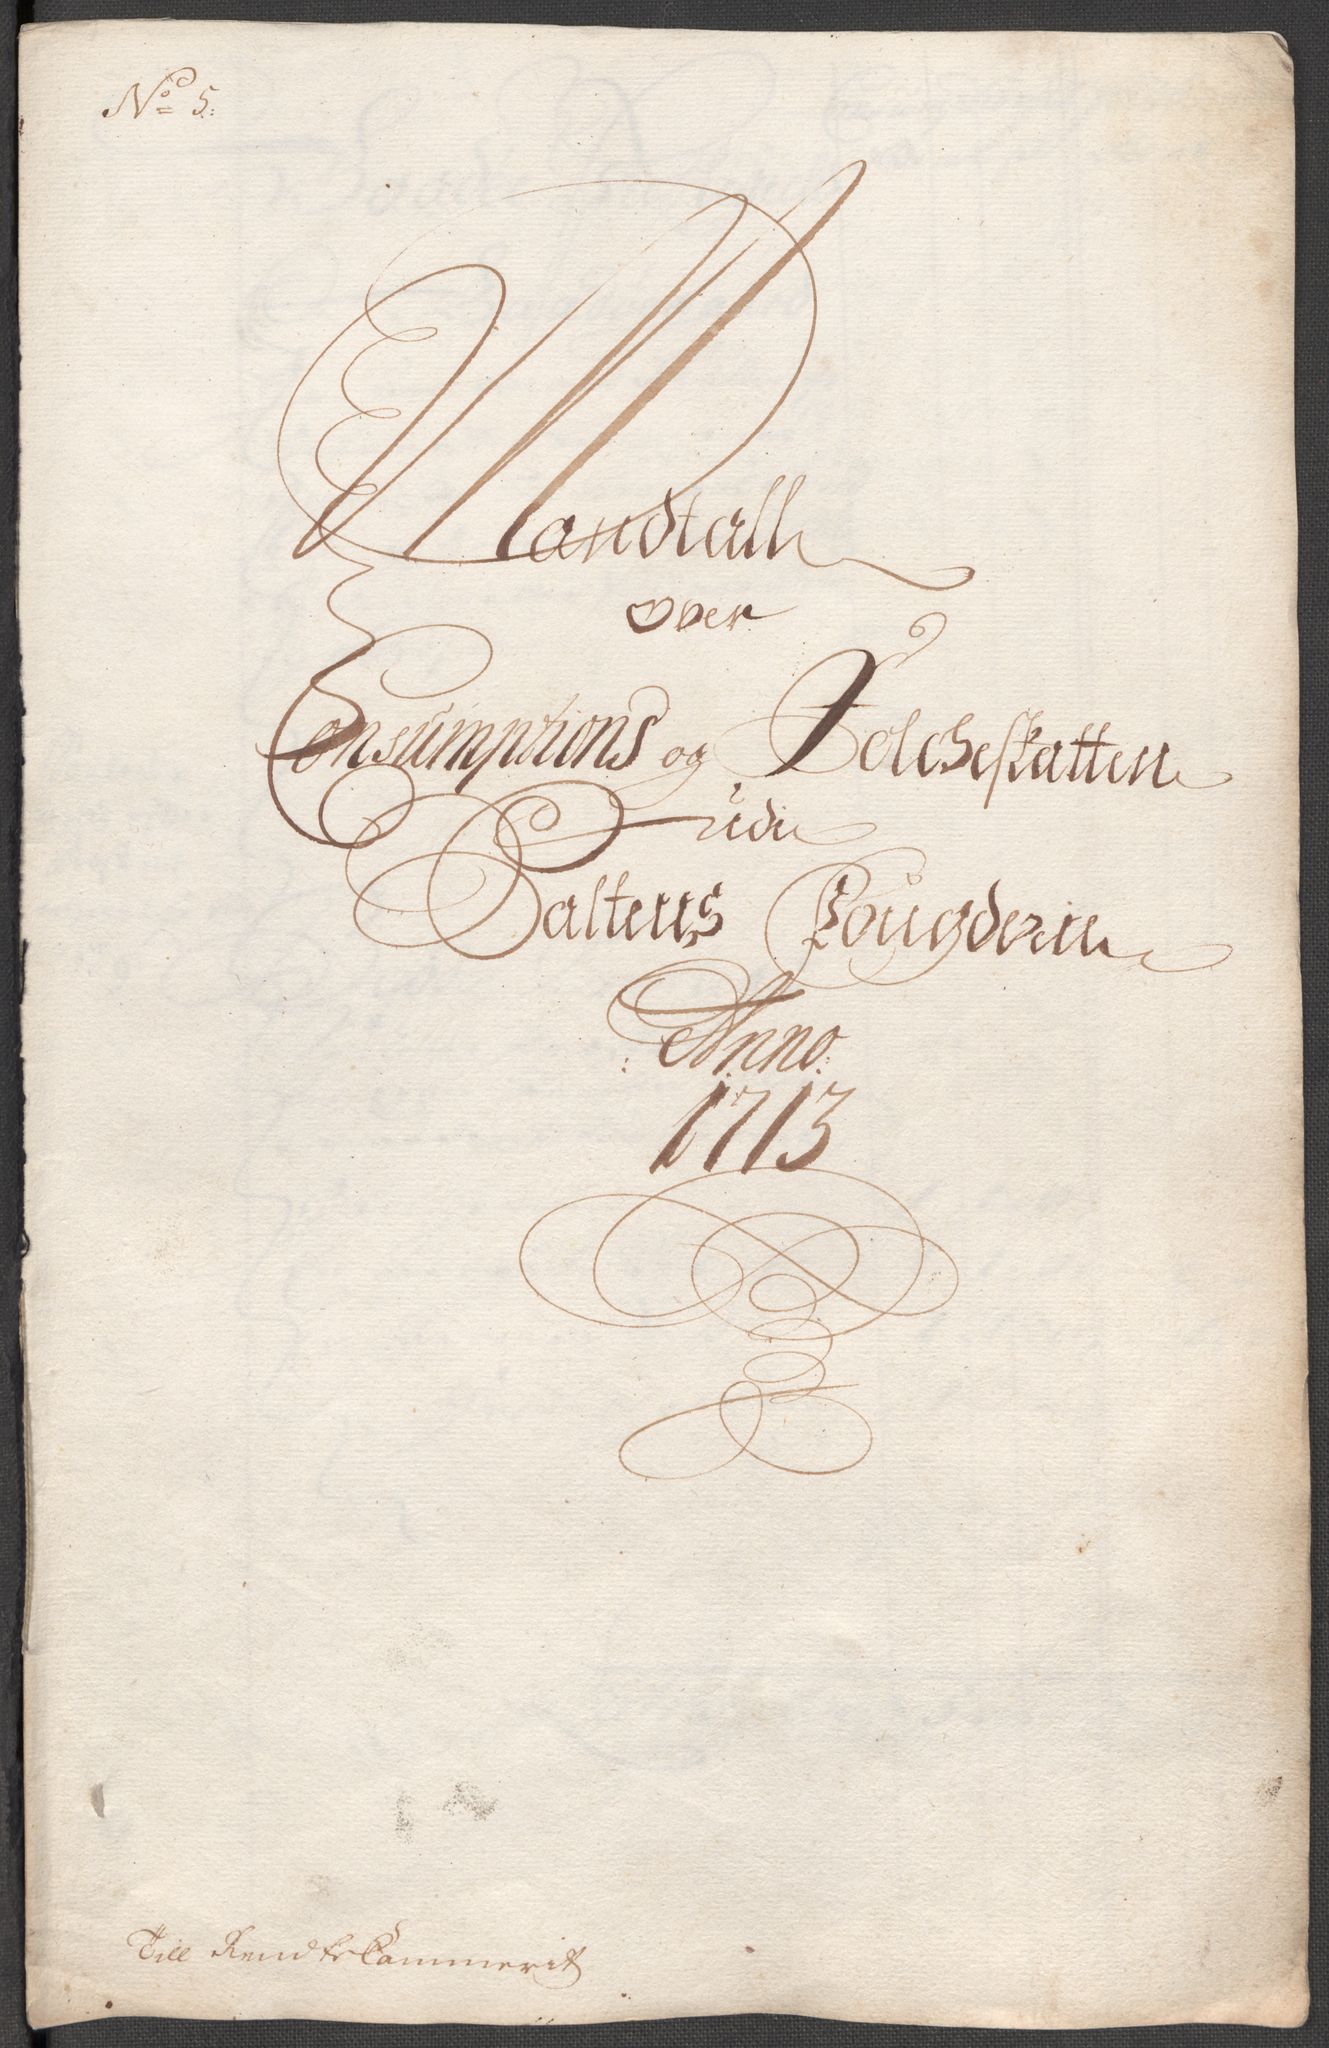 No 5.
Mandtall
over
Consumptions og Folcheskatten
udi
Saltens Fougderie
Anno
1713
Till Rendtekammerit